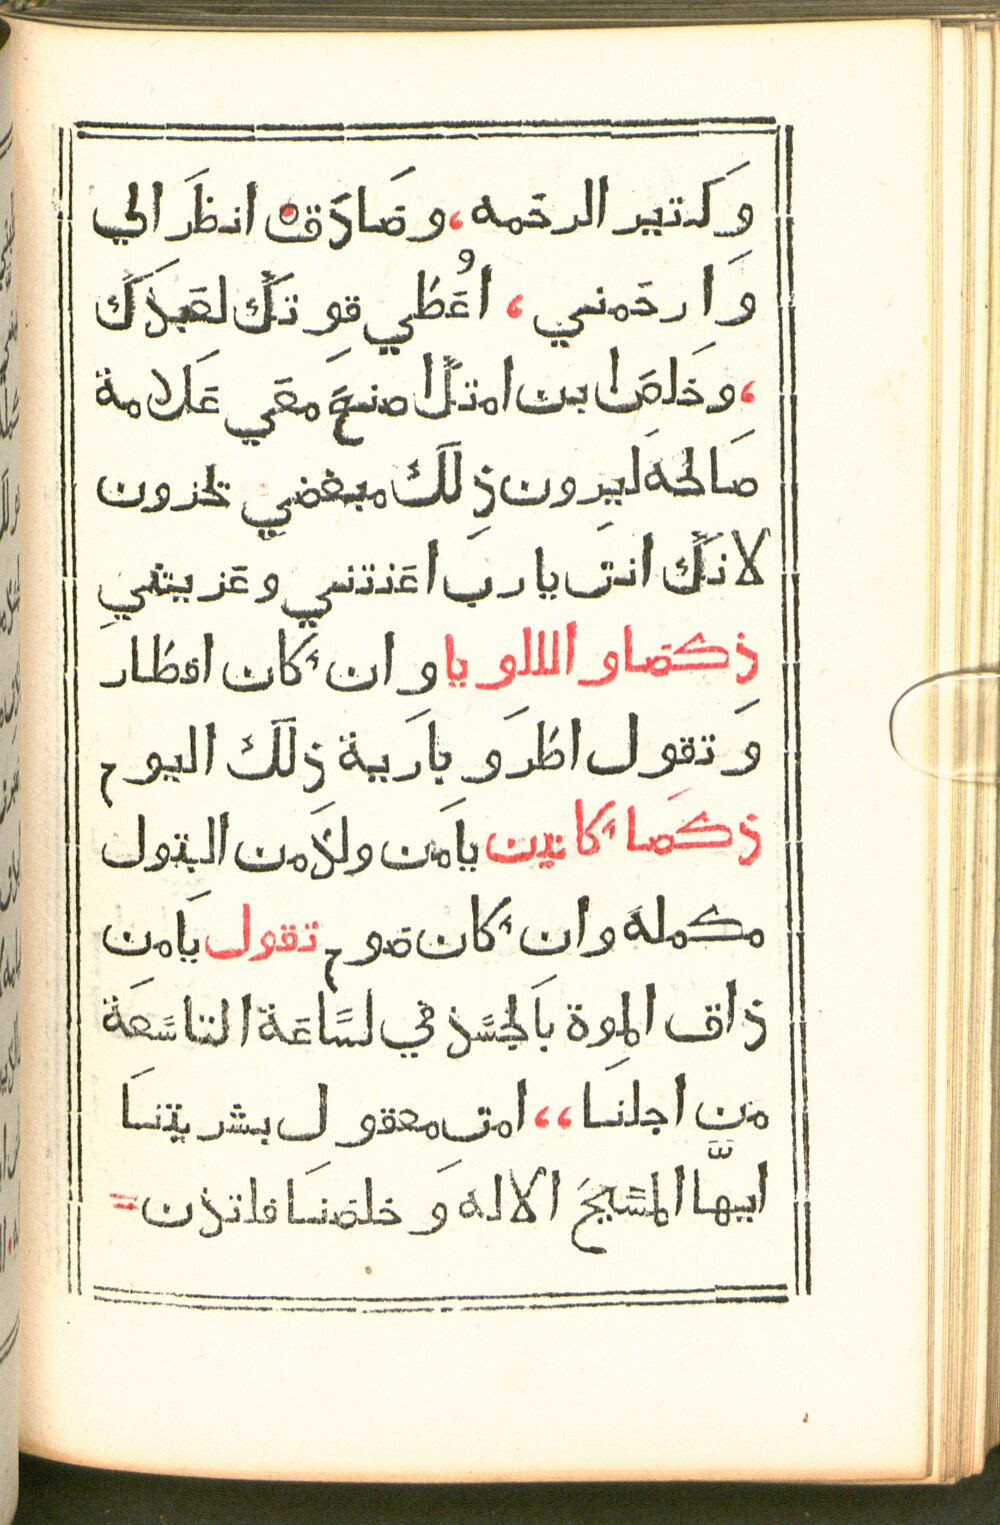 وَكتير الرحَمه، وصَادَق انظَر الي
وَارحَمني، اُعَطي قوتكَ لعَبدَكَ
،وخلصَ ابن امتكَ اصنعَ معَي عَلامة
صَالحَه ليرون ذِلَكَ مبغضي يخزون
لانكَ انت يارب اعَنتني وعَزيتني
ذكصا و الللويا وان كان افطار
وَتقول اطرَو بارَية ذلَكَ اليوم
ذكصَا كانين يامَن ولدَ من البتول
مكملهَ وان كان صوم تقول يَامن
ذاق الموة بَالجسَد في لسَاعَة التاسَعَة
من اجلنَا ،، امت معقول بشريتنَا
ايهَّا المسَيحَ الاله وَخلصنَا فلتدن =